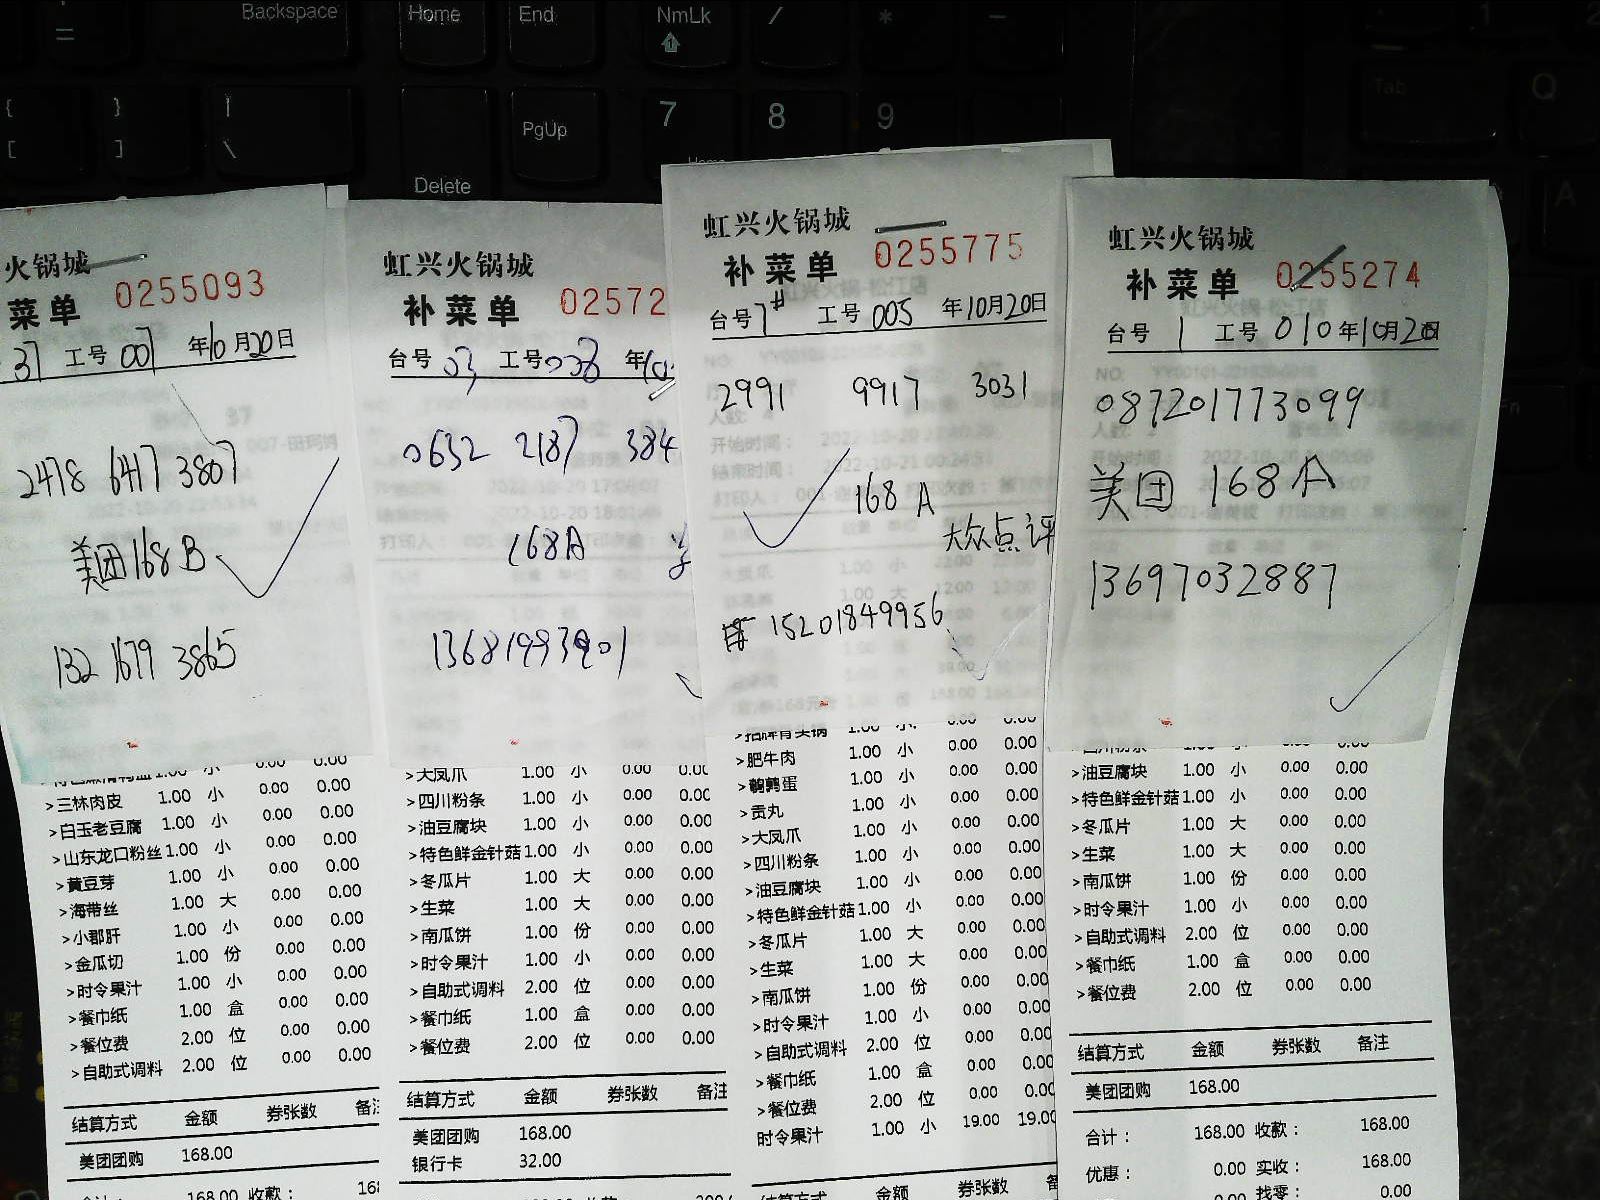 Backspace
Home
End
NmLk
/
*
=
{
[
}
]
|
\
PgUp
7
8
9
Delete
Home
Tab
Q
A
火锅城
0255093
菜单
37 工号 007 年10月20日
2478 6417 3807
美团168B
132 1679 3865
>三林肉皮 1.00 小 0.00 0.00
>白玉老豆腐 1.00 小 0.00 0.00
>山东龙口粉丝 1.00 小 0.00 0.00
>黄豆芽 1.00 小 0.00 0.00
>海带丝 1.00 大 0.00 0.00
>小郡肝 1.00 小 0.00 0.00
>金瓜切 1.00 份 0.00 0.00
>时令果汁 1.00 小 0.00 0.00
>餐巾纸 1.00 盒 0.00 0.00
>餐位费 2.00 位 0.00 0.00
>自助式调料 2.00 位 0.00 0.00
结算方式 金额 券张数
美团团购 168.00
168.00 收款：
虹兴火锅城
补菜单
02572
台号 03 工号 008 年10
0632 2187 384
168A
>大凤爪 1.00 小 0.00 0.00
>四川粉条 1.00 小 0.00 0.00
>油豆腐块 1.00 小 0.00 0.00
>特色鲜金针菇 1.00 小 0.00 0.00
>冬瓜片 1.00 大 0.00 0.00
>生菜 1.00 大 0.00 0.00
>南瓜饼 1.00 份 0.00 0.00
>时令果汁 1.00 小 0.00 0.00
>自助式调料 2.00 位 0.00 0.00
>餐巾纸 1.00 盒 0.00 0.00
>餐位费 2.00 位 0.00 0.00
结算方式 金额 券张数 备注
美团团购 168.00
银行卡 32.00
虹兴火锅城
补菜单
0255775
台号 7# 工号 005 年10月20日
2991 9917 3031
168 A
大众点评
15201849956
>招牌骨头锅 1.00 小 0.00 0.00
>肥牛肉 1.00 小 0.00 0.00
>鹌鹑蛋 1.00 小 0.00 0.00
>贡丸 1.00 小 0.00 0.00
>大凤爪 1.00 小 0.00 0.00
>四川粉条 1.00 小 0.00 0.00
>油豆腐块 1.00 小 0.00 0.00
>特色鲜金针菇 1.00 小 0.00 0.00
>冬瓜片 1.00 大 0.00 0.00
>生菜 1.00 大 0.00 0.00
>南瓜饼 1.00 份 0.00 0.00
>时令果汁 1.00 小 0.00 0.00
>自助式调料 2.00 位 0.00 0.00
>餐巾纸 1.00 盒 0.00 0.00
>餐位费 2.00 位 0.00 0.00
时令果汁 1.00 小 19.00 19.00
结算方式 金额 券张数
虹兴火锅城
补菜单
0255274
台号 1 工号 010 年10月20日
087201773099
美团 168A
13697032887
>四川粉条 1.00 小 0.00 0.00
>油豆腐块 1.00 小 0.00 0.00
>特色鲜金针菇 1.00 小 0.00 0.00
>冬瓜片 1.00 大 0.00 0.00
>生菜 1.00 大 0.00 0.00
>南瓜饼 1.00 份 0.00 0.00
>时令果汁 1.00 小 0.00 0.00
>自助式调料 2.00 位 0.00 0.00
>餐巾纸 1.00 盒 0.00 0.00
>餐位费 2.00 位 0.00 0.00
结算方式 金额 券张数 备注
美团团购 168.00
合计： 168.00 收款： 168.00
优惠： 0.00 实收： 168.00
找零： 0.00